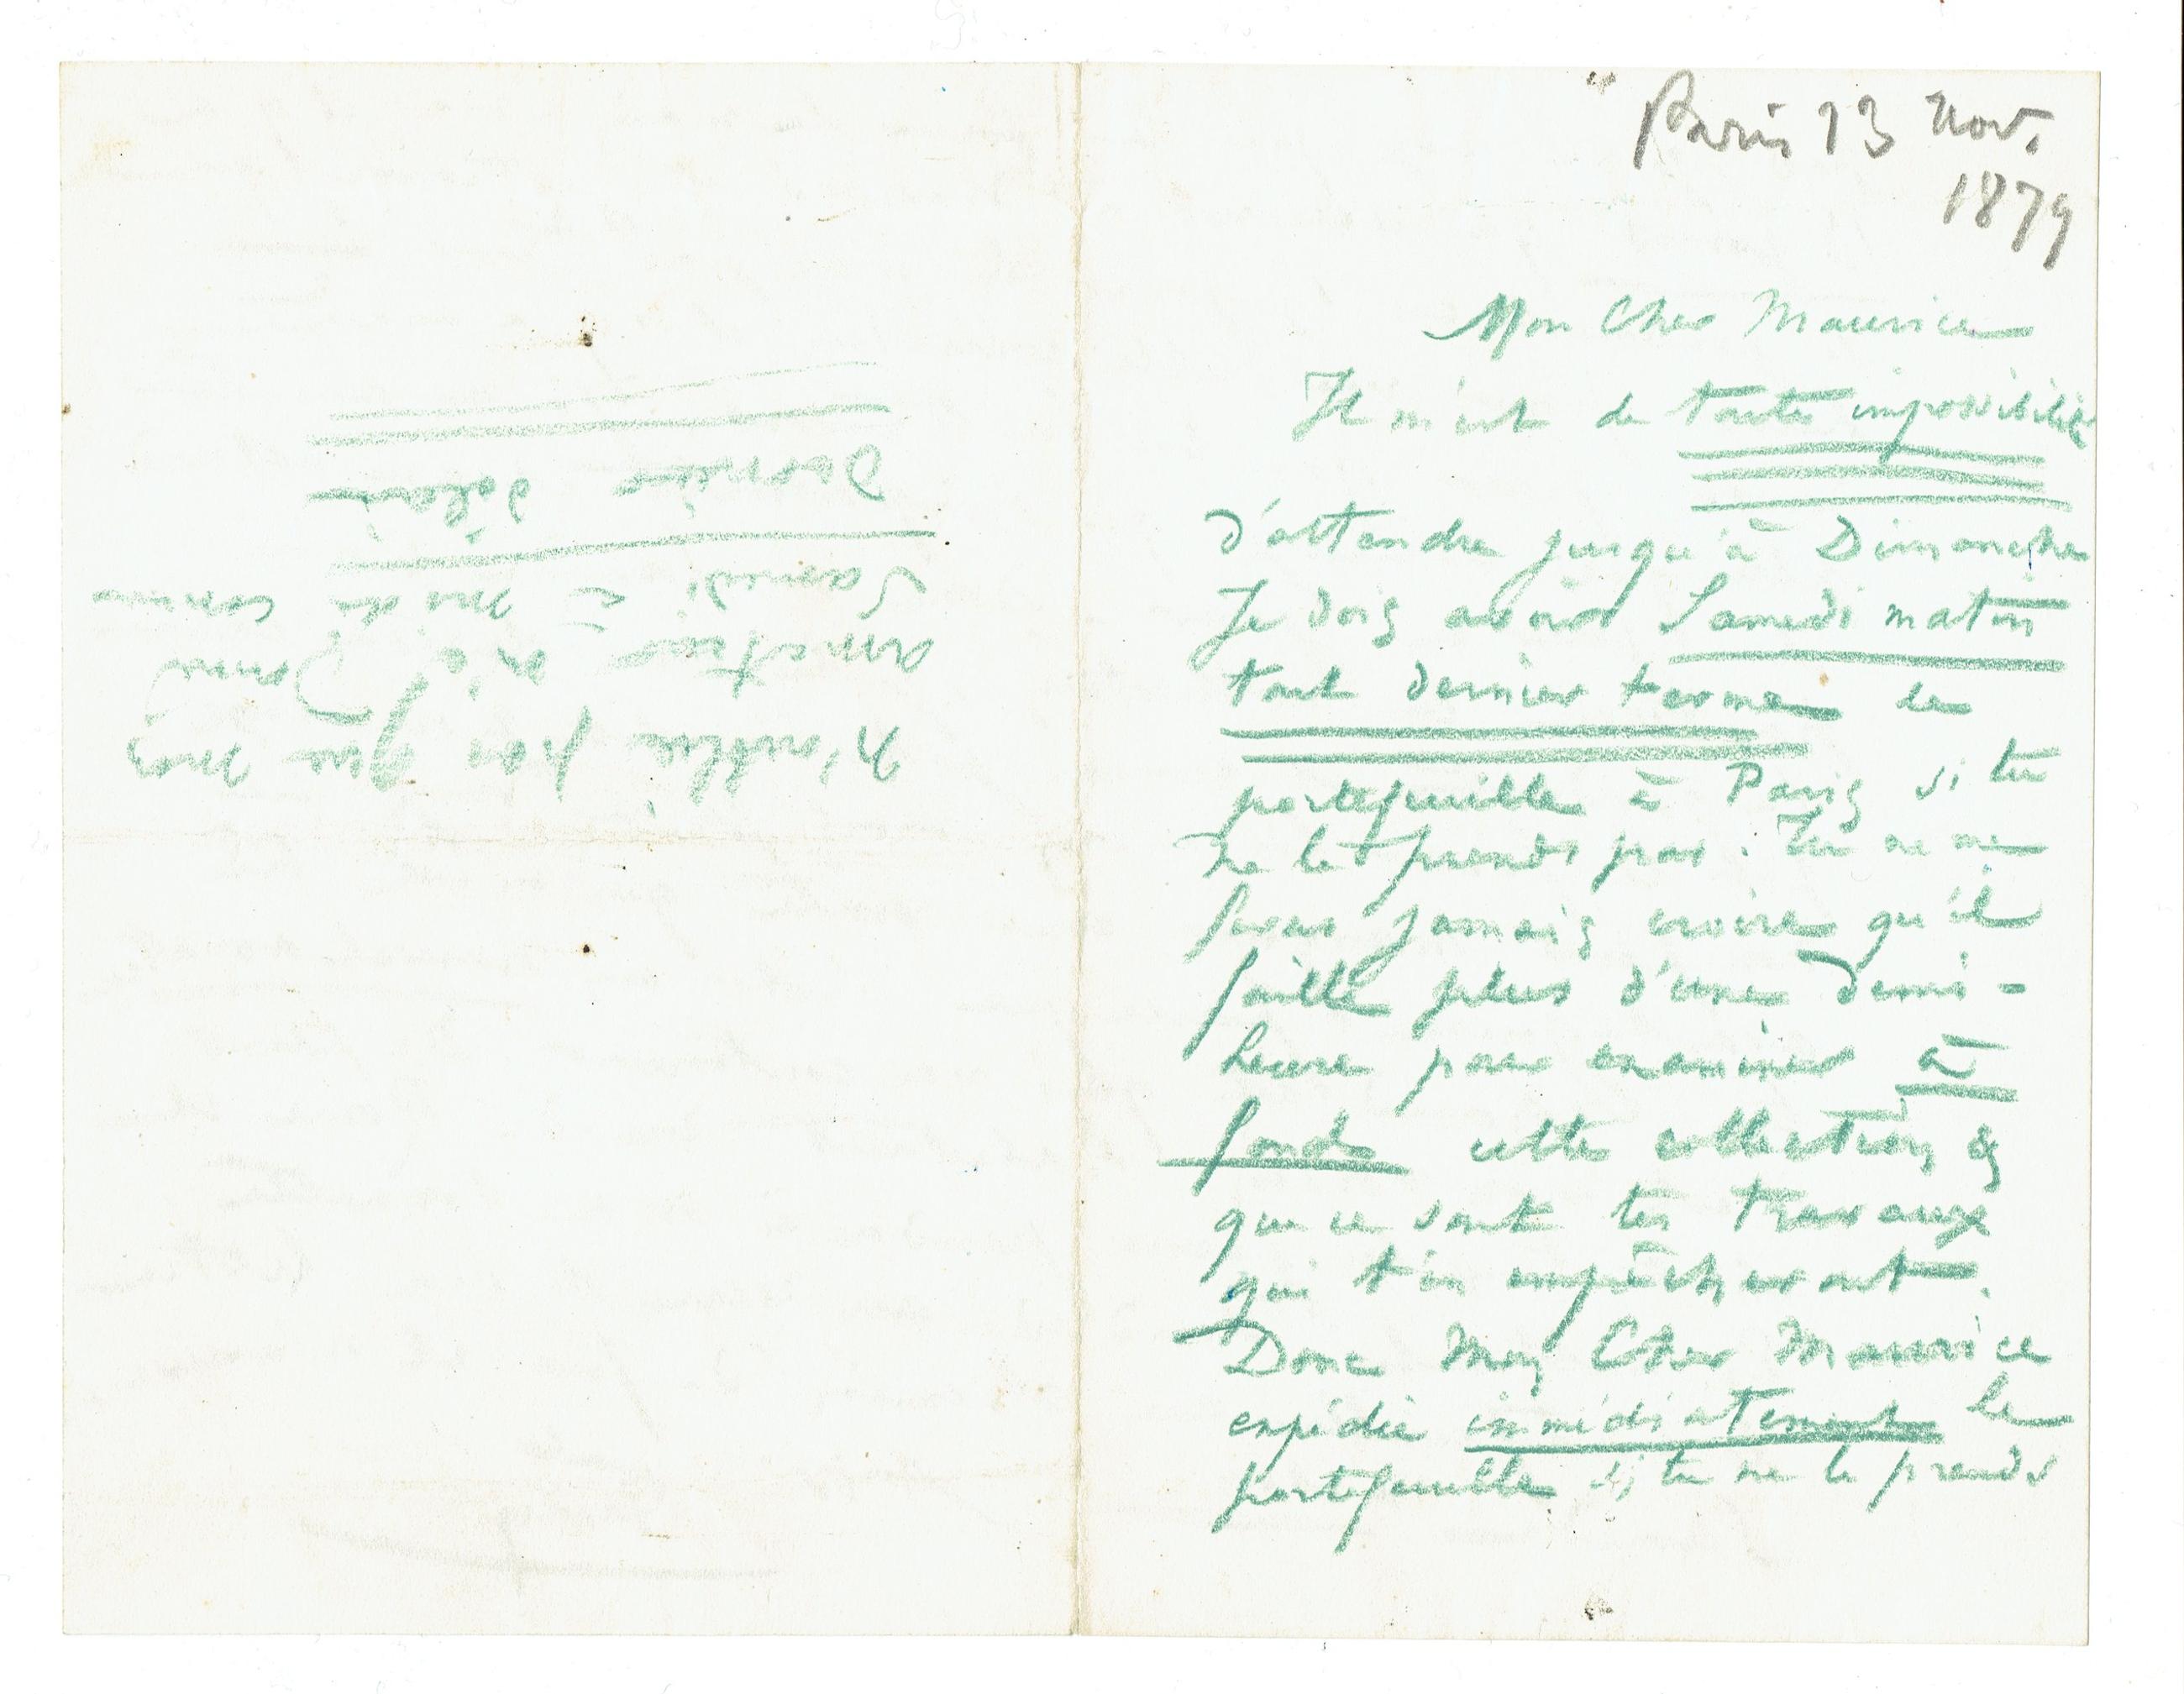 Paris 13 Nov.
1879
Mon Cher Maurice
Il m'est de toute impossibilité
d'attendre jusqu'à Dimanche
Je dois avoir Samedi matin
tout dernier terme le
portefeuille à Paris si tu
ne le prends pas. Tu ne me
feras jamais croire qu'il
faille plus d'une demi-
heure pour examiner à
fond cette collection &
que ce sont tes travaux
qui t'en empêcheront.
Donc Mon Cher Maurice
expédie immédiatement le
portefeuille si tu ne le prends
N'oublie pas que mon
amateur m'a donné
Samedi à midi comme
Dernier délai